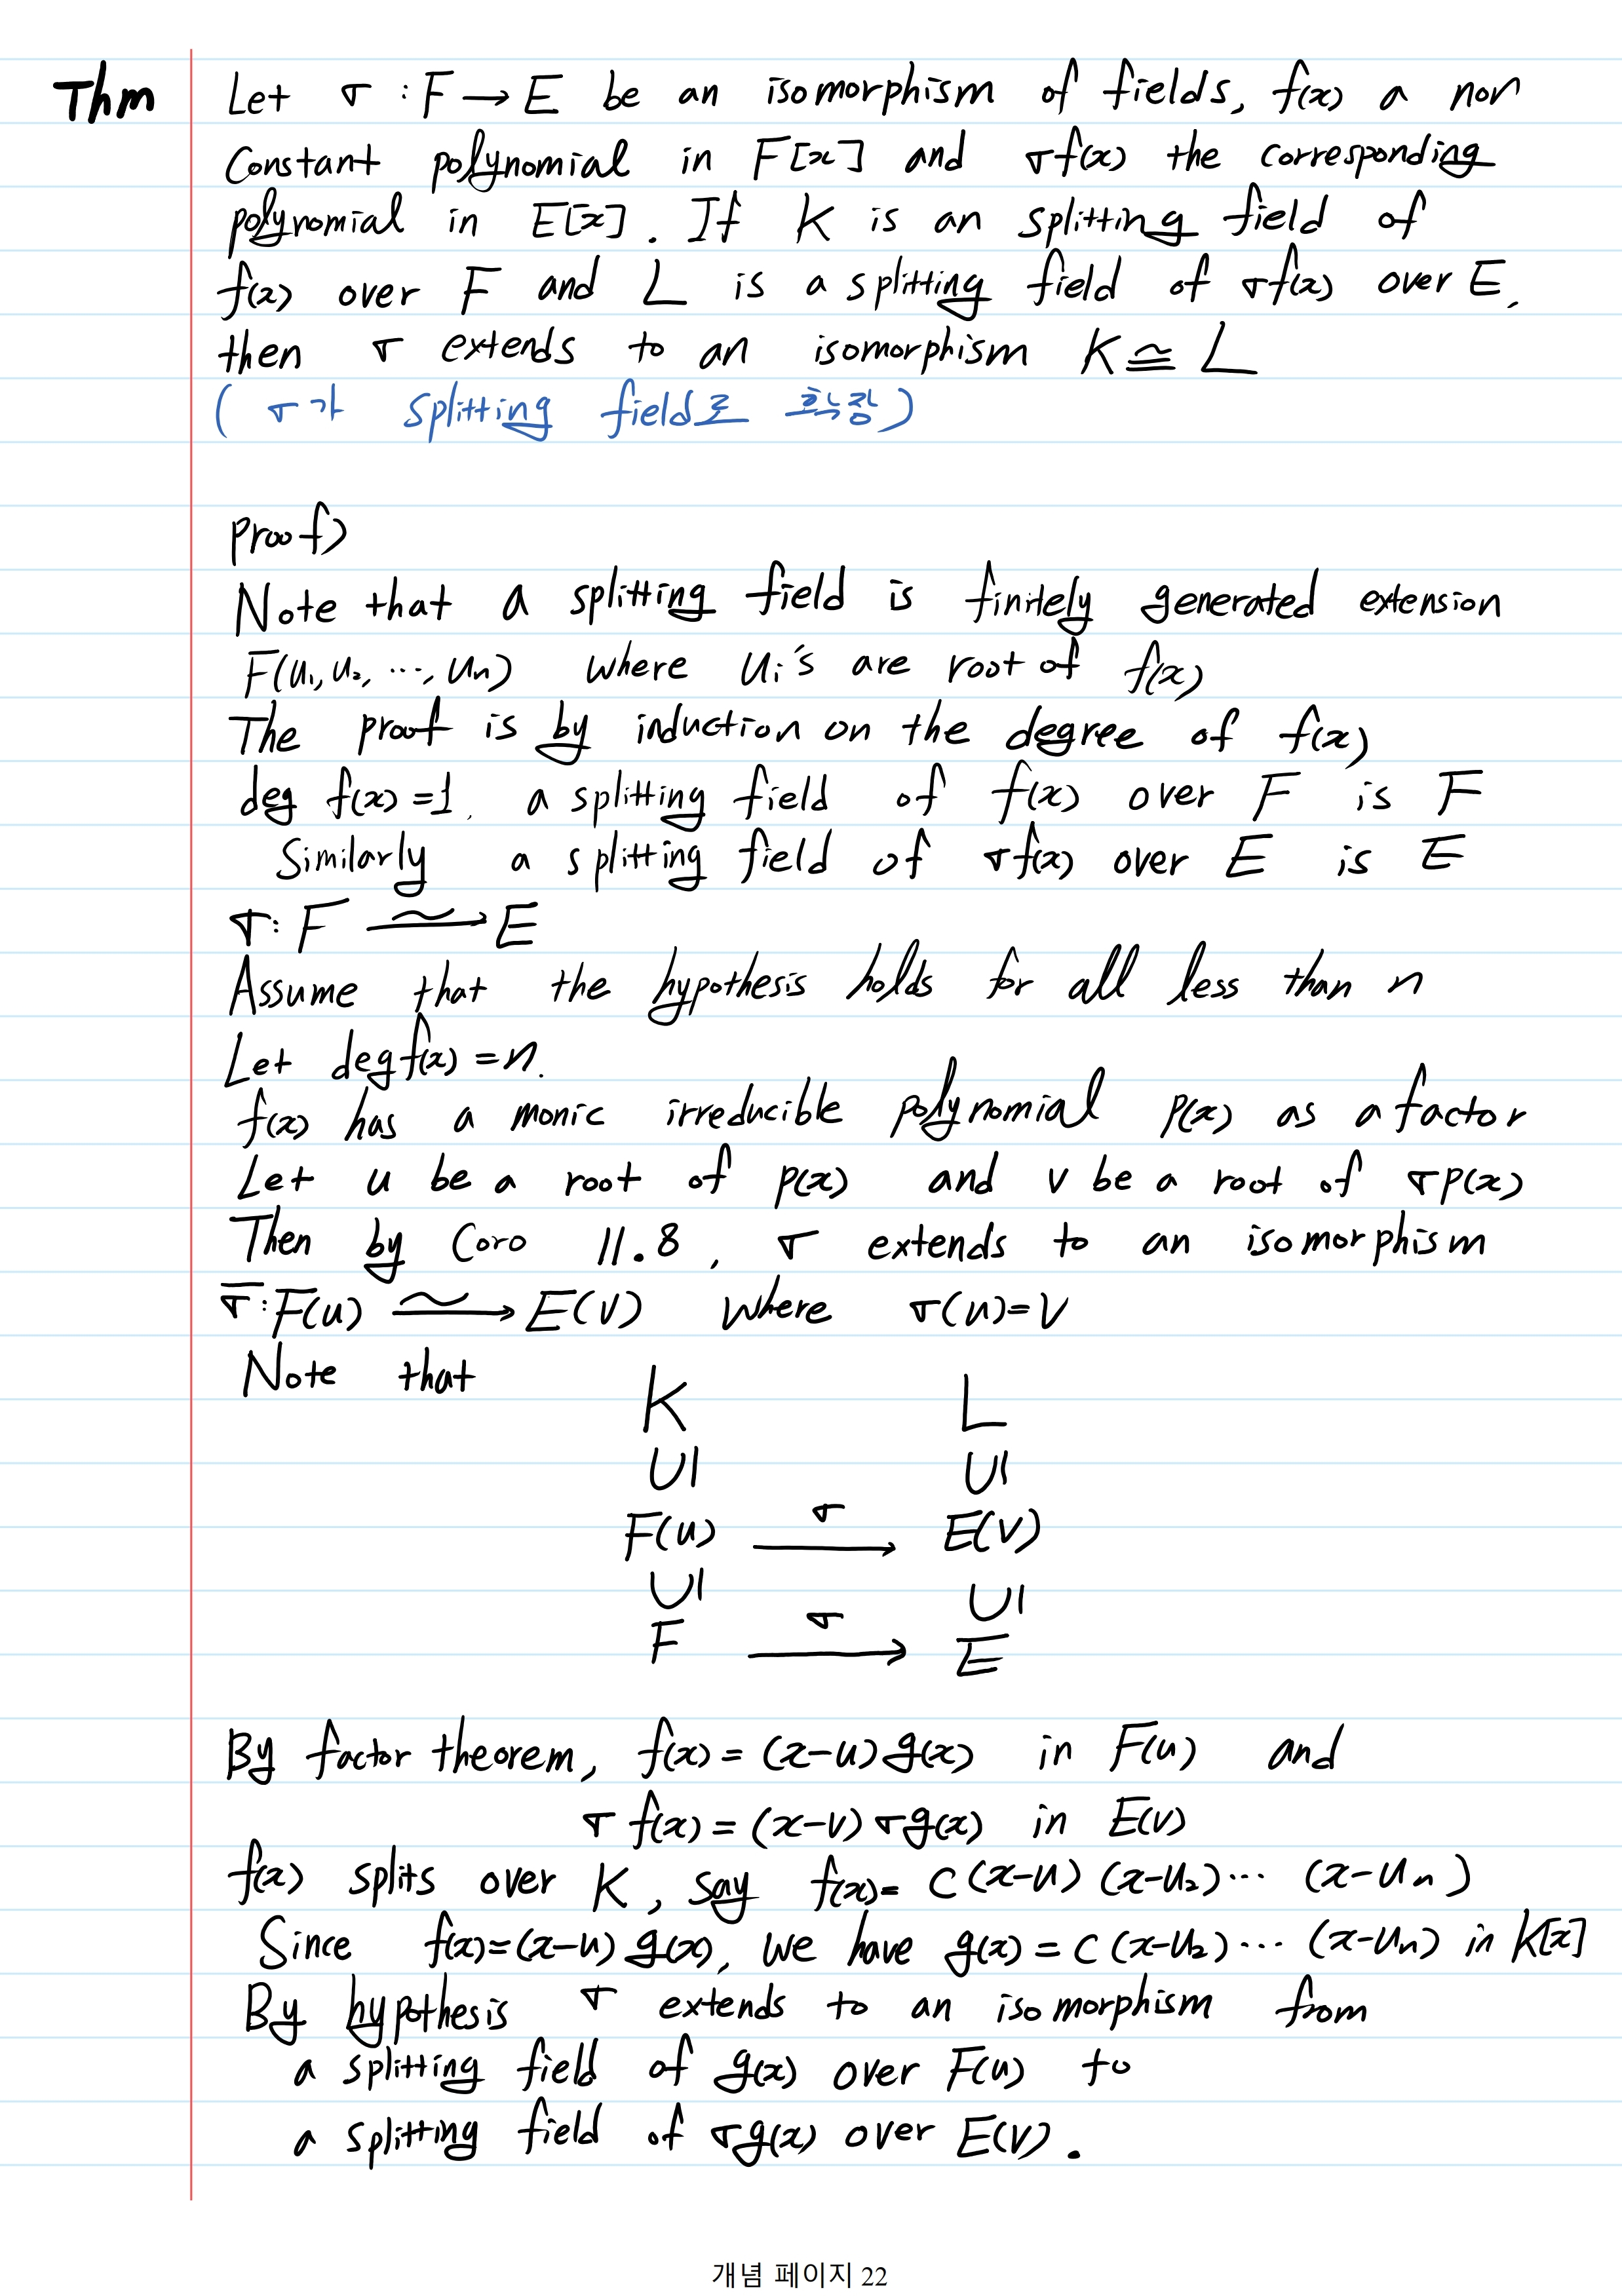 Thm Let σ : F → E be an isomorphism of fields, f(x) a non
constant polynomial in F[x] and σf(x) the corresponding
polynomial in E[x]. If K is an splitting field of
f(x) over F and L is a splitting field of σf(x) over E,
then σ extends to an isomorphism K ≅ L
( σ가 splitting field로 확장)
proof>
Note that a splitting field is finitely generated extension
F(u₁, u₂, ⋯, uₙ) where uᵢ's are root of f(x)
The proof is by induction on the degree of f(x)
deg f(x) = 1, a splitting field of f(x) over F is F
Similarly a splitting field of σf(x) over E is E
σ: F ⥲ E
Assume that the hypothesis holds for all less than n
Let deg f(x) = n.
f(x) has a monic irreducible polynomial p(x) as a factor
Let u be a root of p(x) and v be a root of σp(x)
Then by Coro 11.8, σ extends to an isomorphism
σ̅: F(u) ⥲ E(v) where σ(u)=v
Note that
K L
UI UI
F(u) σ → E(v)
UI UI
F σ → E
By factor theorem, f(x) = (x-u) g(x) in F(u) and
σ f(x) = (x-v) σg(x) in E(v)
f(x) splits over K, say f(x) = c (x-u) (x-u₂) ⋯ (x-uₙ)
Since f(x)=(x-u) g(x), we have g(x) = c (x-u₂) ⋯ (x-uₙ) in K[x]
By hypothesis σ extends to an isomorphism from
a splitting field of g(x) over F(u) to
a splitting field of σg(x) over E(v).
개념 페이지 22